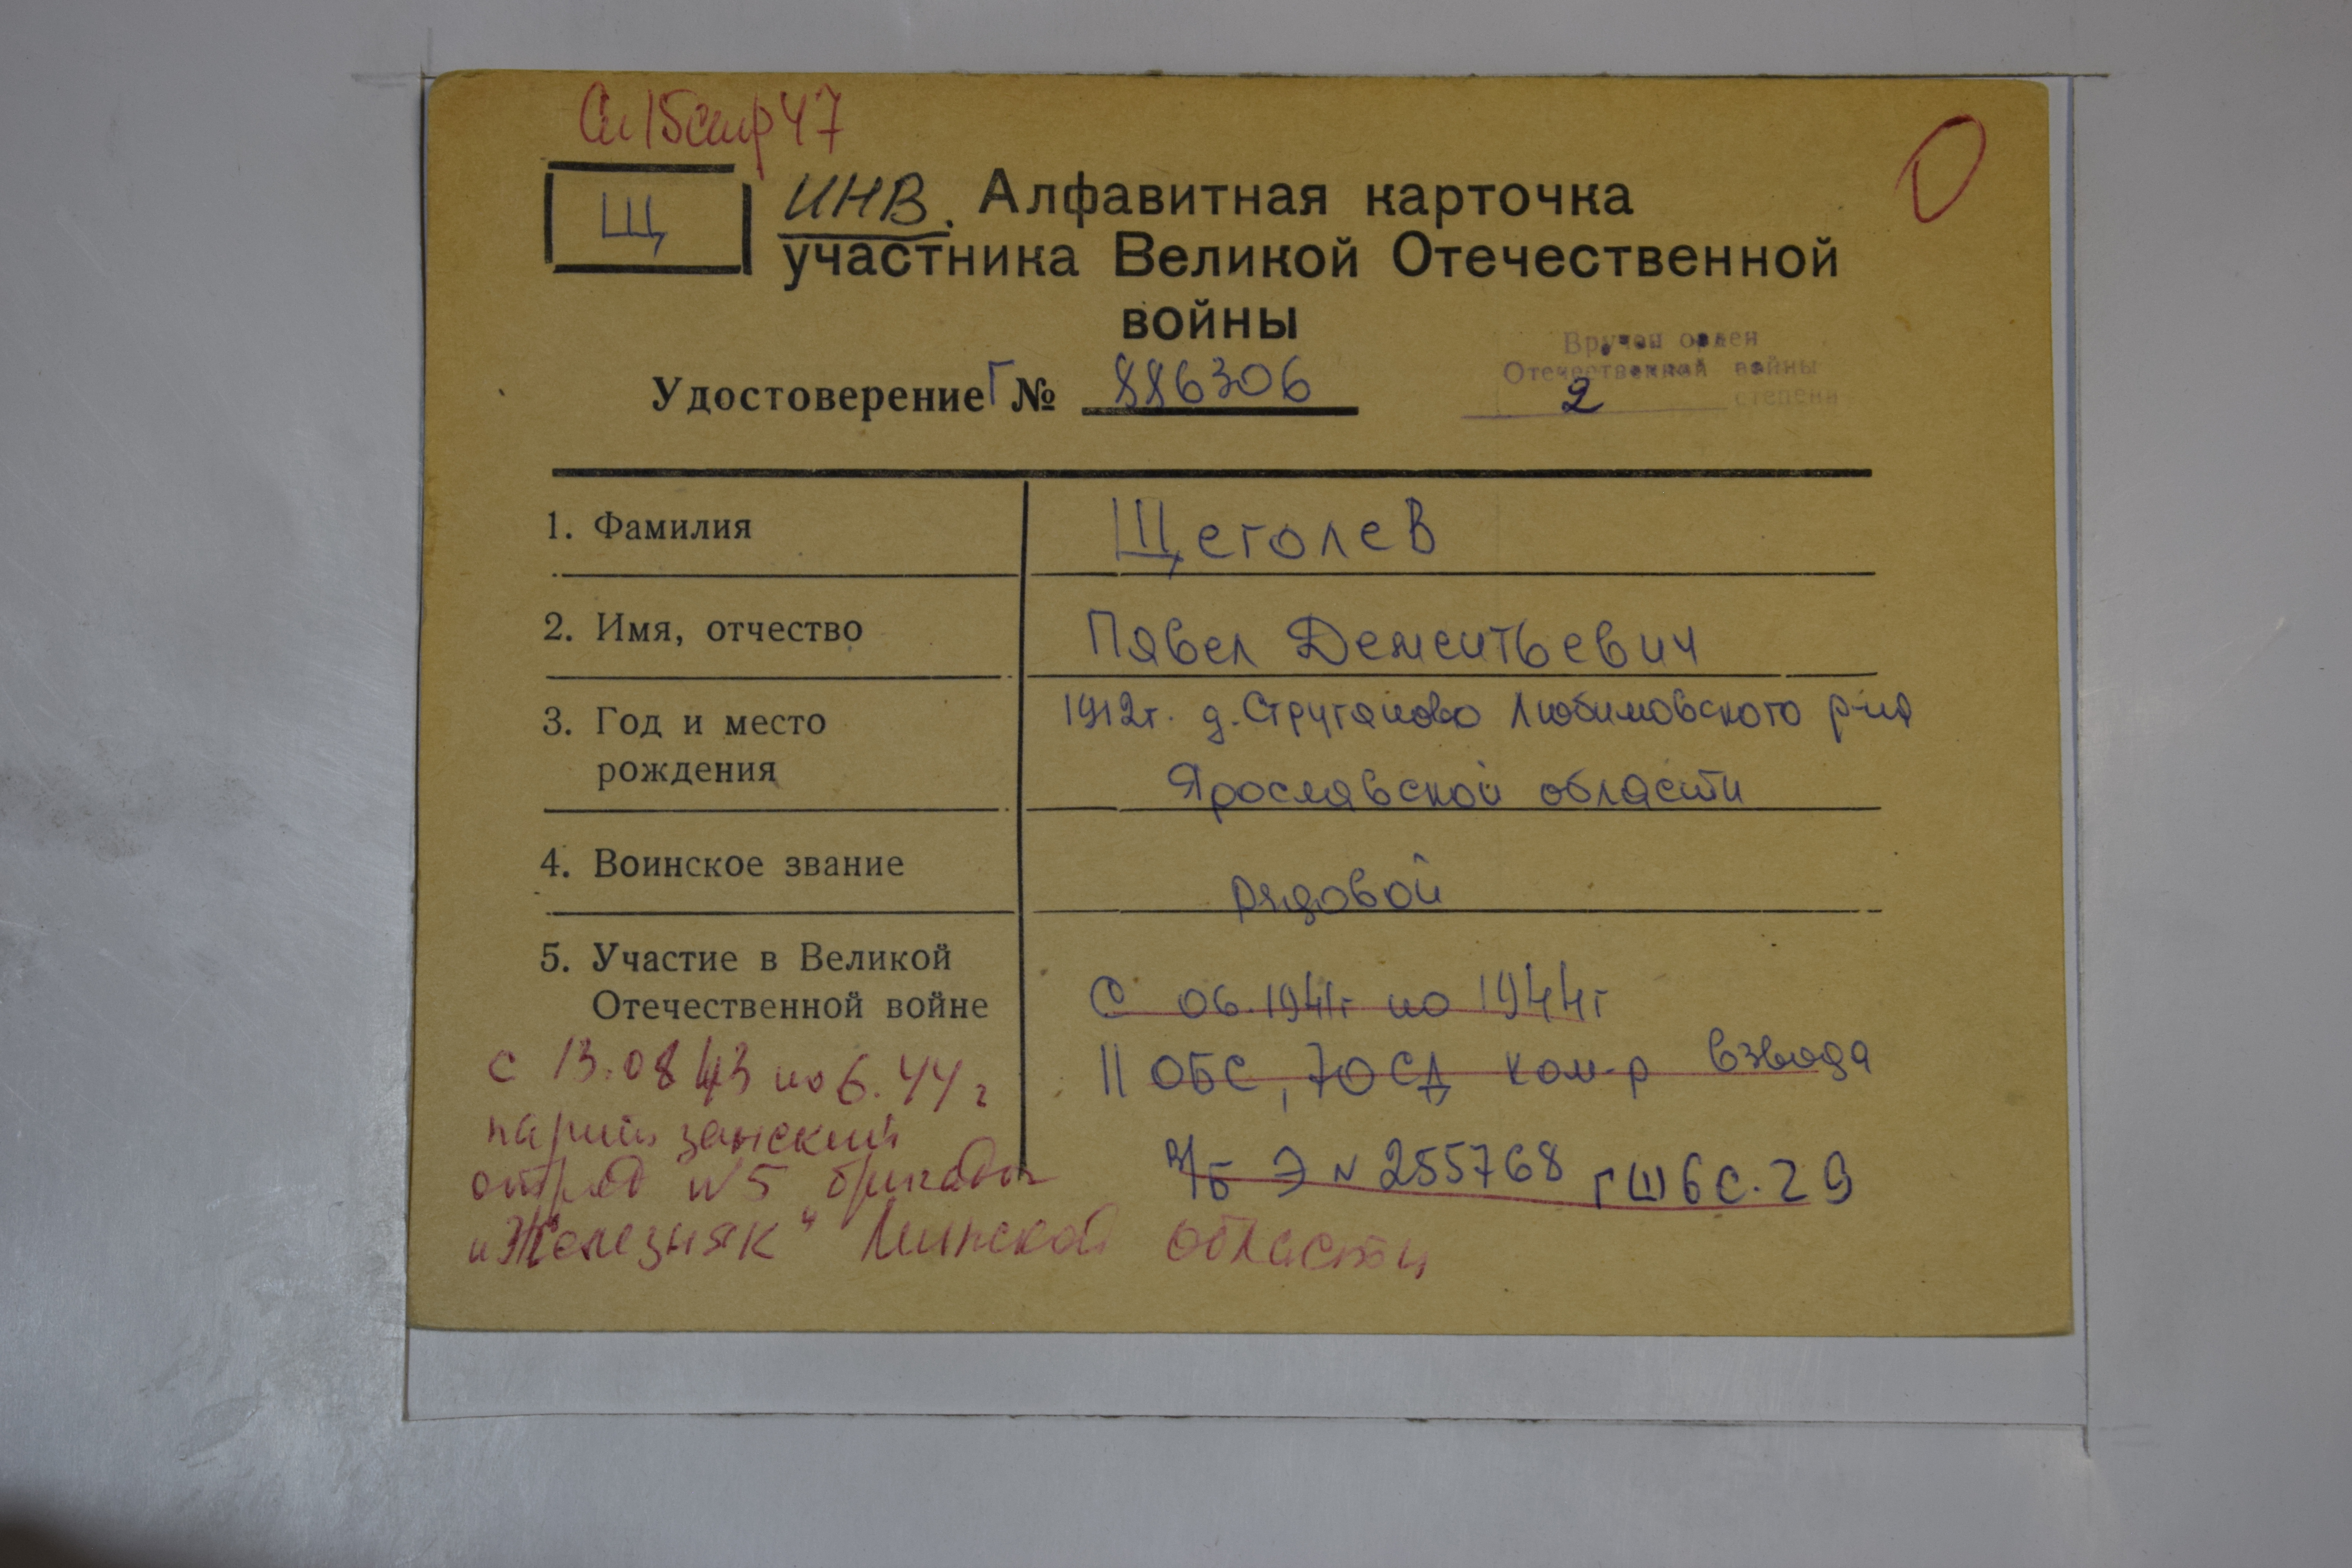 Сп 15 стр 47
Щ
ИНВ. Алфавитная карточка
участника Великой Отечественной
войны
Вручен орден
Отечественной войны
2 степени
Удостоверение Г № 886306
1. Фамилия Щеголев
2. Имя, отчество Павел Дементьевич
3. Год и место рождения 1912г. д. Струганово Любимовского р-на
Ярославской области
4. Воинское звание рядовой
5. Участие в Великой
Отечественной войне
с 06.1941г по 1944г
11 ОБС, 70 СД ком-р взвода
в/б Э № 255768 ГШ 6 С. 29
с 13.08 43 по 6.44 г
партизанский
отряд №5 бригады
"Железняк" Минской области